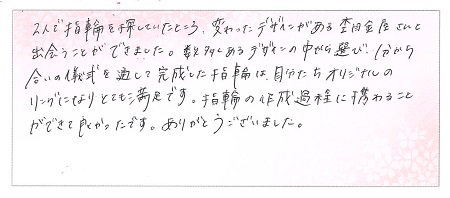 2人で指輪を探していたところ、変わったデザインがある杢目金屋さんと
出会うことができました。数多くあるデザインの中から選び、分かち
合いの儀式を通して完成した指輪は、自分たちオリジナルの
リングになりとても満足です。指輪の作成過程に携わること
ができて良かったです。ありがとうございました。